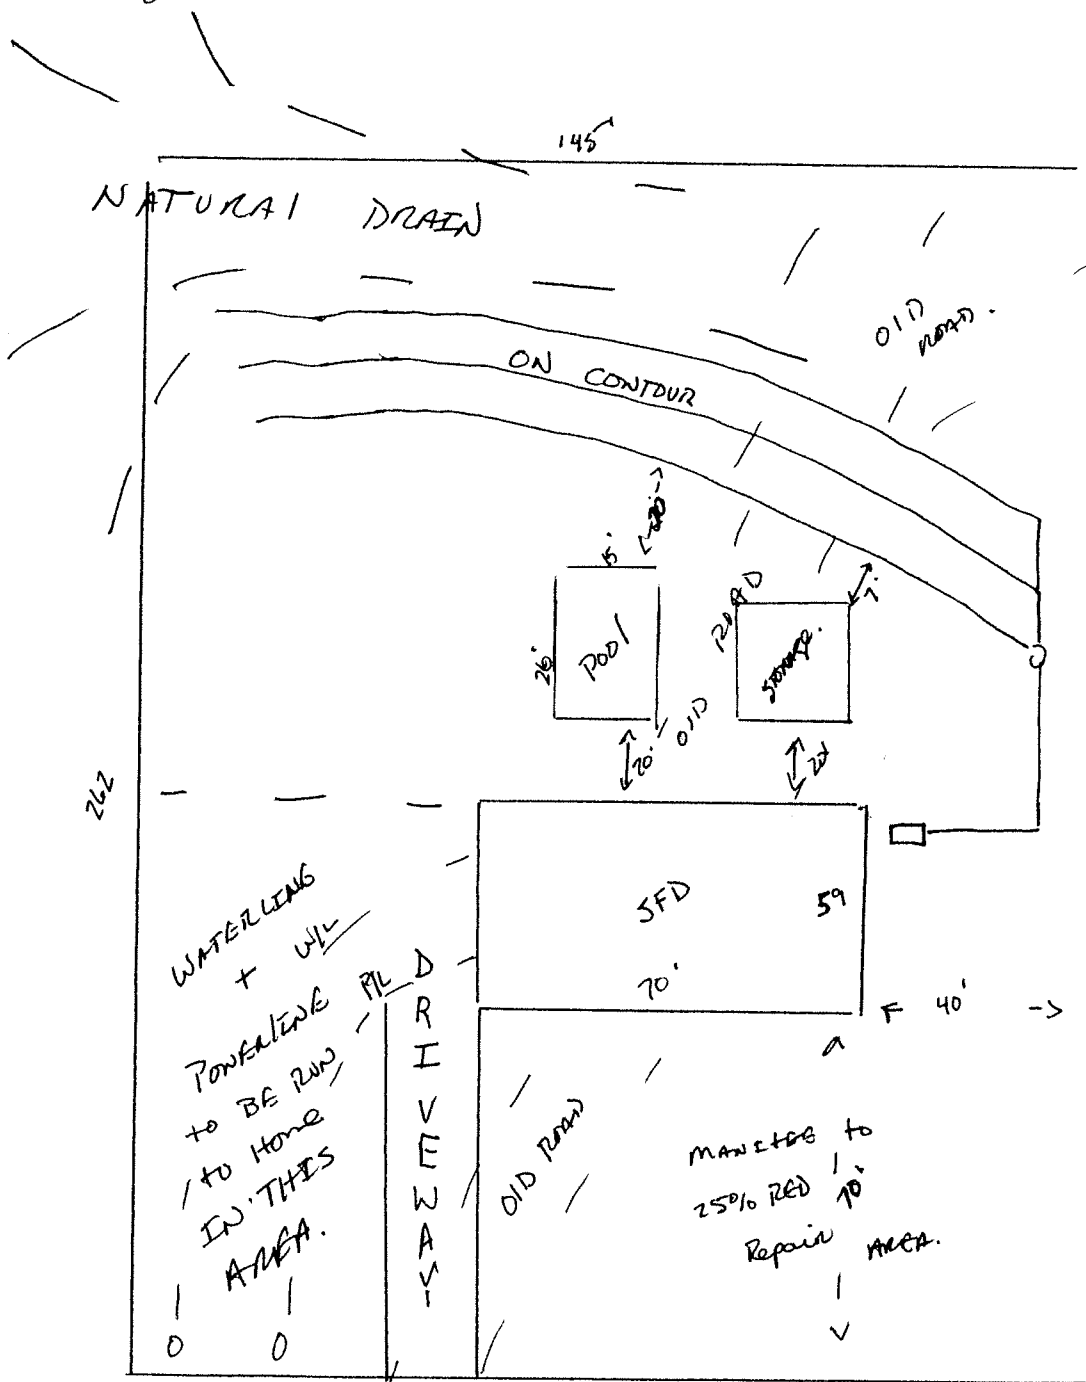 145'
NATURAl DRAIN
OlD
ROAD.
ON CONTOUR
15'
20'
7'
26'
POOl
STORAGE.
OlD ROAD
20'
20'
262
SFD
59
70'
40'
WATERLINE
+ W/L
POWERlINE P/L
to BE RUN
to Home
IN THIS
AREA.
DRIVEWAY
OlD ROAD
to
25% RED
70'
Repair AREA.
O O